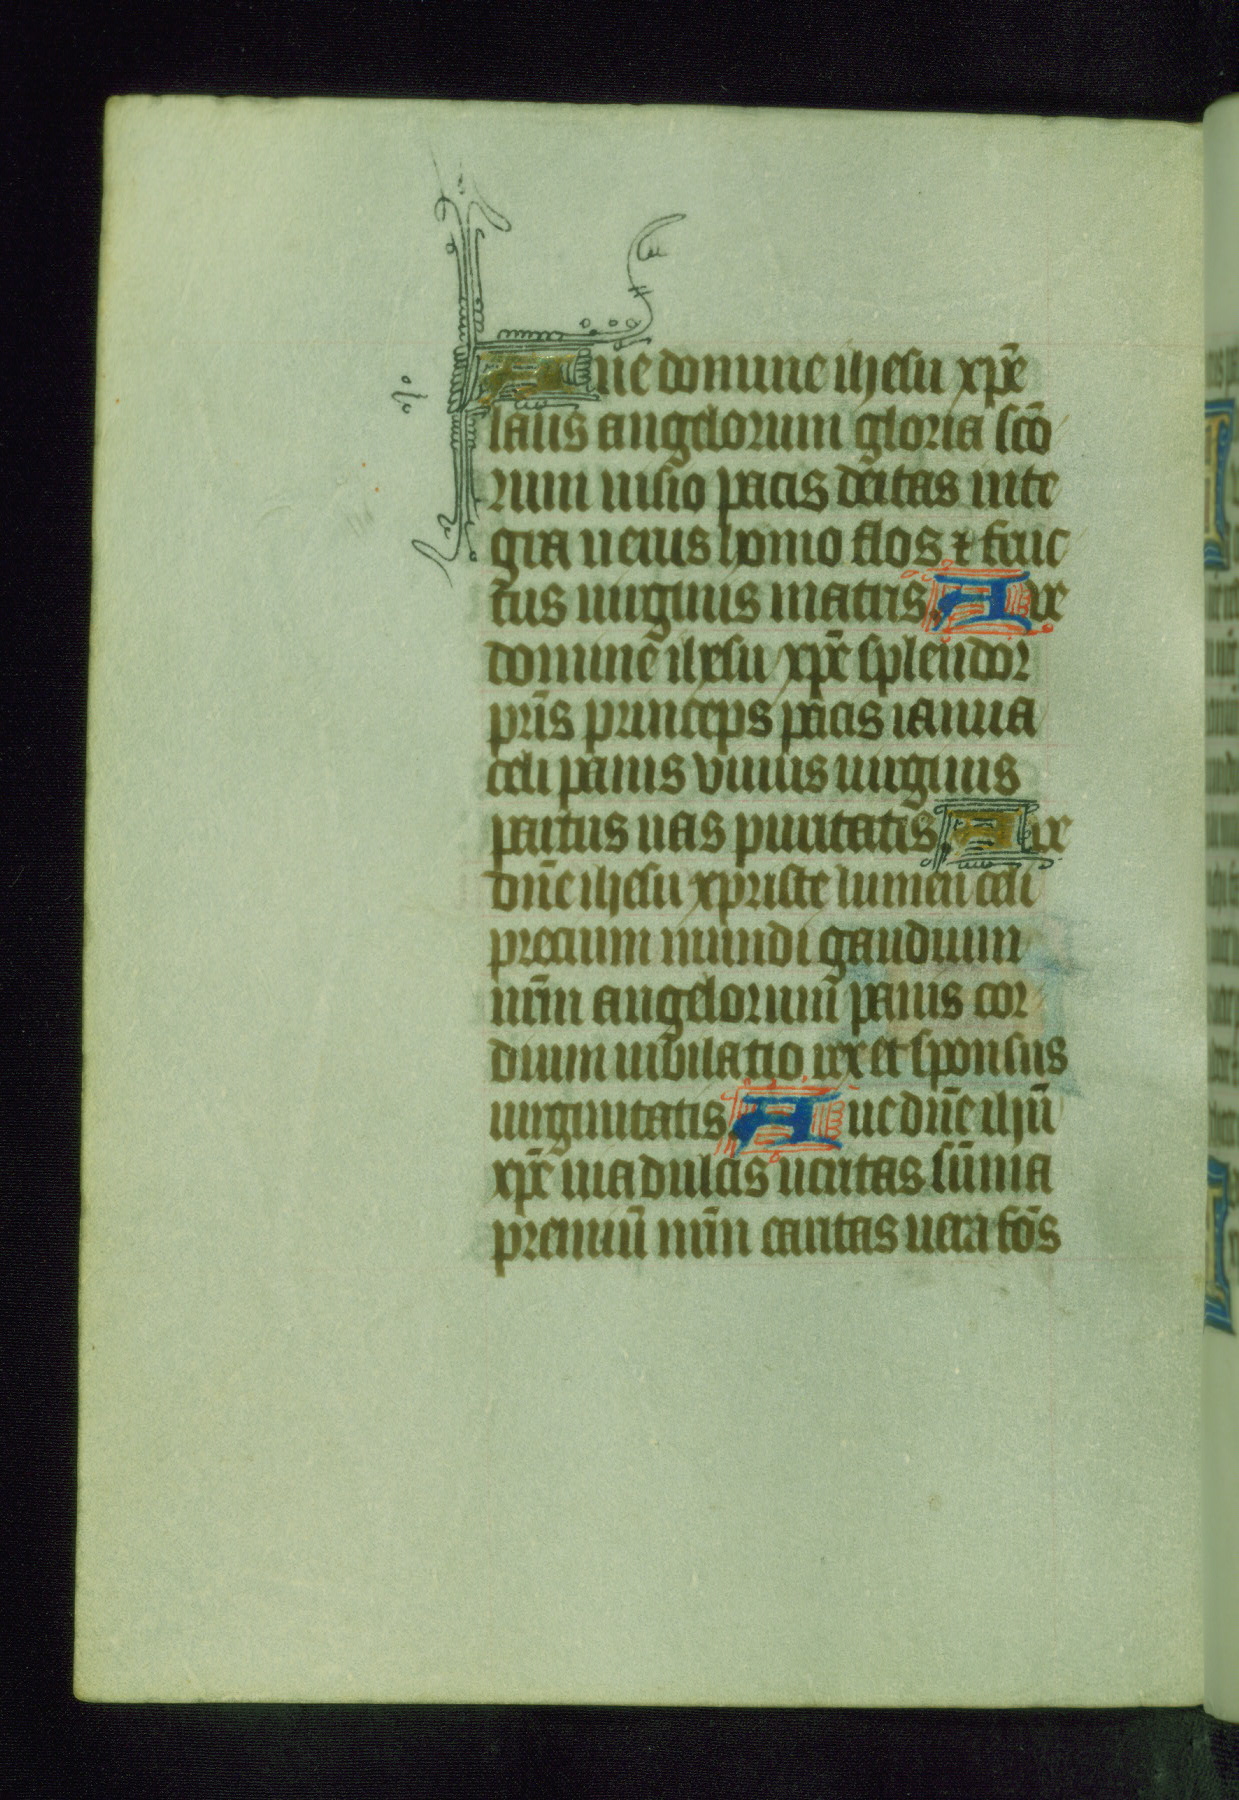 Aue domine ihesu xp̄e
laus angelorum gloria sc̄o
rum uisio pacis deitas inte
gra uerus homo flos ⁊ fruc
tus uirginis matris. Aue
domine ihesu xp̄e splendor
pr̄is princeps pacis ianua
celi panis viuus uirginis
partus uas puritatis. Aue
dn̄e ihesu xpriste lumen celi
precium mundi gaudium
nr̄m angelorum panis cor
dium iubilatio rex et sponsus
uirginitatis. Aue dn̄e ihū
xp̄e uia dulcis ueritas sūma
premiū nr̄m caritas uera fōs